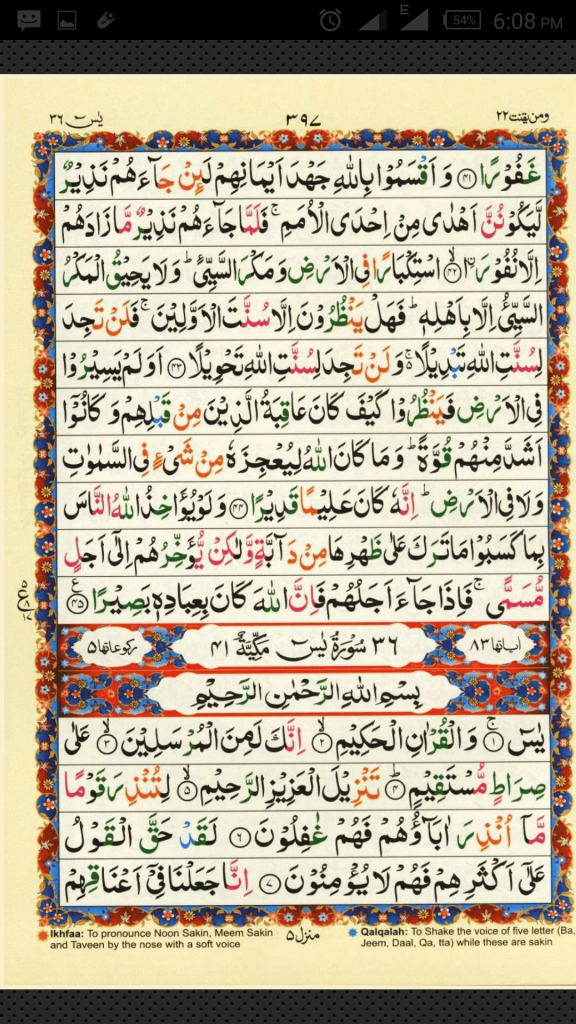 E 54% 6:08 PM
ومن یقنت ۲۲ ۳۹۷ یٰسٓ ۳۶
غَفُوْرًا ﴿۴۱﴾ وَ اَقْسَمُوْا بِاللّٰهِ جَهْدَ اَیْمَانِهِمْ لَىِٕنْ جَآءَهُمْ نَذِیْرٌ
لَّیَكُوْنُنَّ اَهْدٰی مِنْ اِحْدَی الْاُمَمِ ۚ فَلَمَّا جَآءَهُمْ نَذِیْرٌ مَّا زَادَهُمْ
اِلَّا نُفُوْرَا ﴿ۙ۴۲﴾ اسْتِكْبَارًا فِی الْاَرْضِ وَ مَكْرَ السَّیِّئِ ؕ وَ لَا یَحِیْقُ الْمَكْرُ
السَّیِّئُ اِلَّا بِاَهْلِهٖ ؕ فَهَلْ یَنْظُرُوْنَ اِلَّا سُنَّتَ الْاَوَّلِیْنَ ۚ فَلَنْ تَجِدَ
لِسُنَّتِ اللّٰهِ تَبْدِیْلًا ۚ۬ وَ لَنْ تَجِدَ لِسُنَّتِ اللّٰهِ تَحْوِیْلًا ﴿۴۳﴾ اَوَ لَمْ یَسِیْرُوْا
فِی الْاَرْضِ فَیَنْظُرُوْا كَیْفَ كَانَ عَاقِبَةُ الَّذِیْنَ مِنْ قَبْلِهِمْ وَ كَانُوْۤا
اَشَدَّ مِنْهُمْ قُوَّةً ؕ وَ مَا كَانَ اللّٰهُ لِیُعْجِزَهٗ مِنْ شَیْءٍ فِی السَّمٰوٰتِ
وَ لَا فِی الْاَرْضِ ؕ اِنَّهٗ كَانَ عَلِیْمًا قَدِیْرًا ﴿۴۴﴾ وَ لَوْ یُؤَاخِذُ اللّٰهُ النَّاسَ
بِمَا كَسَبُوْا مَا تَرَكَ عَلٰی ظَهْرِهَا مِنْ دَآبَّةٍ وَّ لٰكِنْ یُّؤَخِّرُهُمْ اِلٰۤی اَجَلٍ
مُّسَمًّی ۚ فَاِذَا جَآءَ اَجَلُهُمْ فَاِنَّ اللّٰهَ كَانَ بِعِبَادِهٖ بَصِیْرًا ﴿۴۵﴾
ع ۵ ۸ ۱۷
اٰیاتها ۸۳ ۳۶ سُوْرَةُ یٰسٓ مَكِّیَّةٌ ۴۱ ركوعاتها ۵
بِسْمِ اللّٰهِ الرَّحْمٰنِ الرَّحِیْمِ
یٰسٓ ﴿ۚ۱﴾ وَ الْقُرْاٰنِ الْحَكِیْمِ ﴿ۙ۲﴾ اِنَّكَ لَمِنَ الْمُرْسَلِیْنَ ﴿ۙ۳﴾ عَلٰی
صِرَاطٍ مُّسْتَقِیْمٍ ﴿ؕ۴﴾ تَنْزِیْلَ الْعَزِیْزِ الرَّحِیْمِ ﴿ۙ۵﴾ لِتُنْذِرَ قَوْمًا
مَّاۤ اُنْذِرَ اٰبَآؤُهُمْ فَهُمْ غٰفِلُوْنَ ﴿۶﴾ لَقَدْ حَقَّ الْقَوْلُ
عَلٰۤی اَكْثَرِهِمْ فَهُمْ لَا یُؤْمِنُوْنَ ﴿۷﴾ اِنَّا جَعَلْنَا فِیْۤ اَعْنَاقِهِمْ
منزل ۵
Ikhfaa: To pronounce Noon Sakin, Meem Sakin
and Taveen by the nose with a soft voice
Qalqalah: To Shake the voice of five letter (Ba,
Jeem, Daal, Qa, tta) while these are sakin